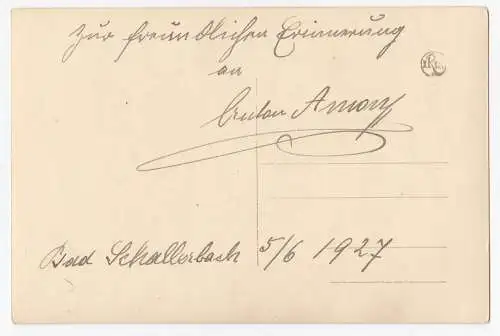 Zur freundlichen Erinnerung
an
Anton Amon
Bad Schallerbach 5/6 1927